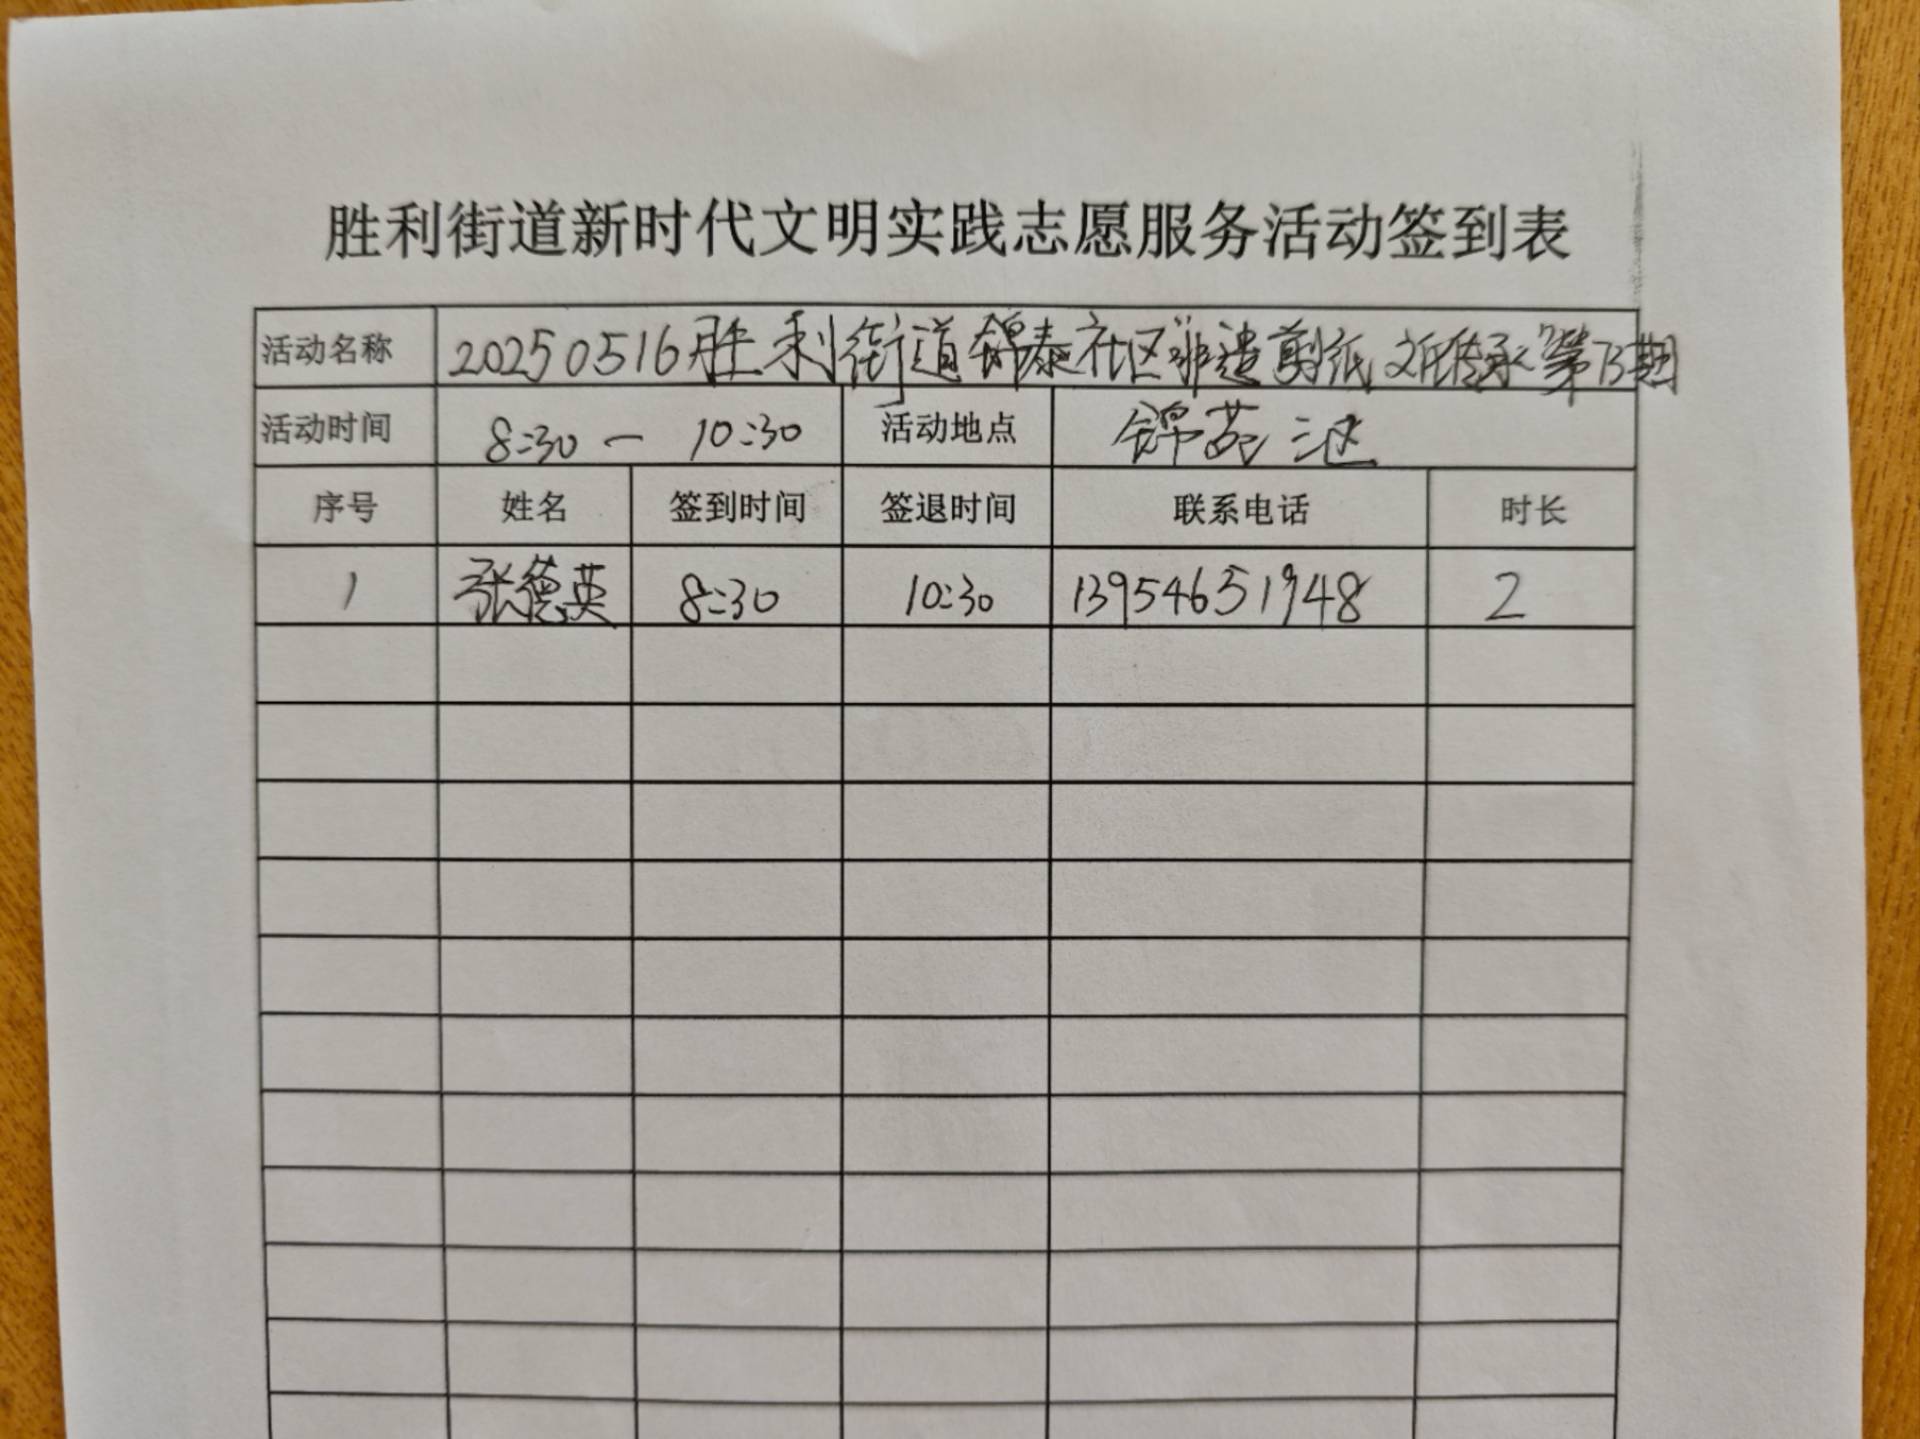 胜利街道新时代文明实践志愿服务活动签到表
活动名称 20250516胜利街道锦泰社区"非遗剪纸文化传承"第73期
活动时间 8:30 — 10:30 活动地点 锦苑三区
序号 姓名 签到时间 签退时间 联系电话 时长
1 张德英 8:30 10:30 13954651948 2